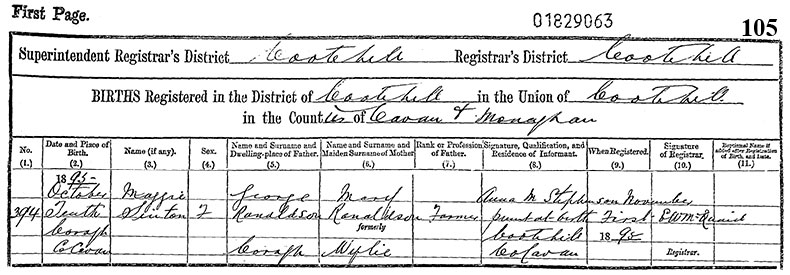 First Page.
01829063
105
Superintendent Registrar's District Cootehill Registrar's District Cootehill
BIRTHS Registered in the District of Cootehill in the Union of Cootehill
in the Counties of Cavan & Monaghan
No. (1.) Date and Place of Birth. (2.) Name (if any). (3.) Sex. (4.) Name and Surname and Dwelling-place of Father. (5.) Name and Surname and Maiden Surname of Mother (6.) Rank or Profession of Father. (7.) Signature, Qualification, and Residence of Informant. (8.) When Registered. (9.) Signature of Registrar. (10.) Baptismal Name if added after Registration of Birth, and Date. (11.)
1895
October Maggie George Mary Anna M. Stephenson November
394 Tenth Sinton F Ronaldson Ronaldson Farmer present at birth First
formerly Cootehill 1895
Co Cavan Wylie Co Cavan Registrar.